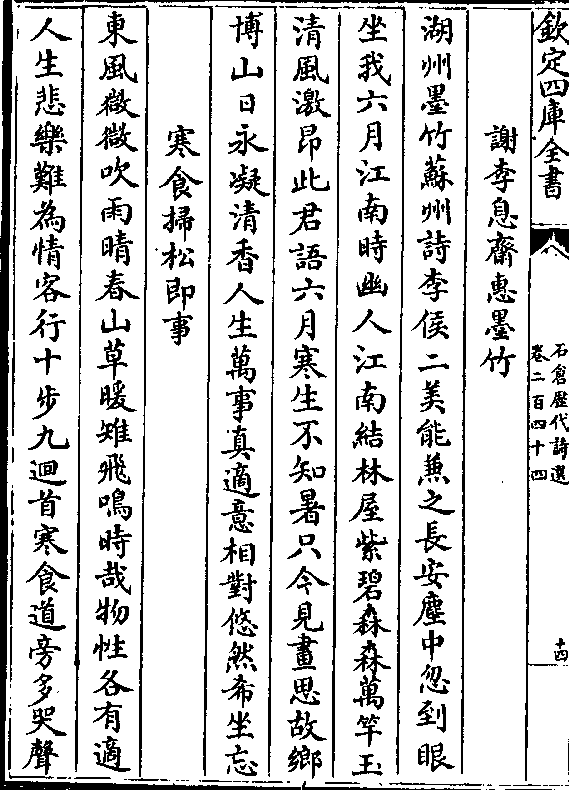 欽定四庫全書
石倉歷代詩選
卷二百四十四
十四
謝李息齋惠墨竹
湖州墨竹蘇州詩李侯二美能兼之長安塵中忽到眼
坐我六月江南時幽人江南結林屋紫碧森森萬竿玉
清風激昂此君語六月寒生不知暑只今見畫思故鄉
博山日永凝清香人生萬事真適意相對悠然希坐忘
寒食掃松即事
東風微微吹雨晴春山草暖雉飛鳴時哉物性各有適
人生悲樂難為情客行十步九迴首寒食道旁多哭聲